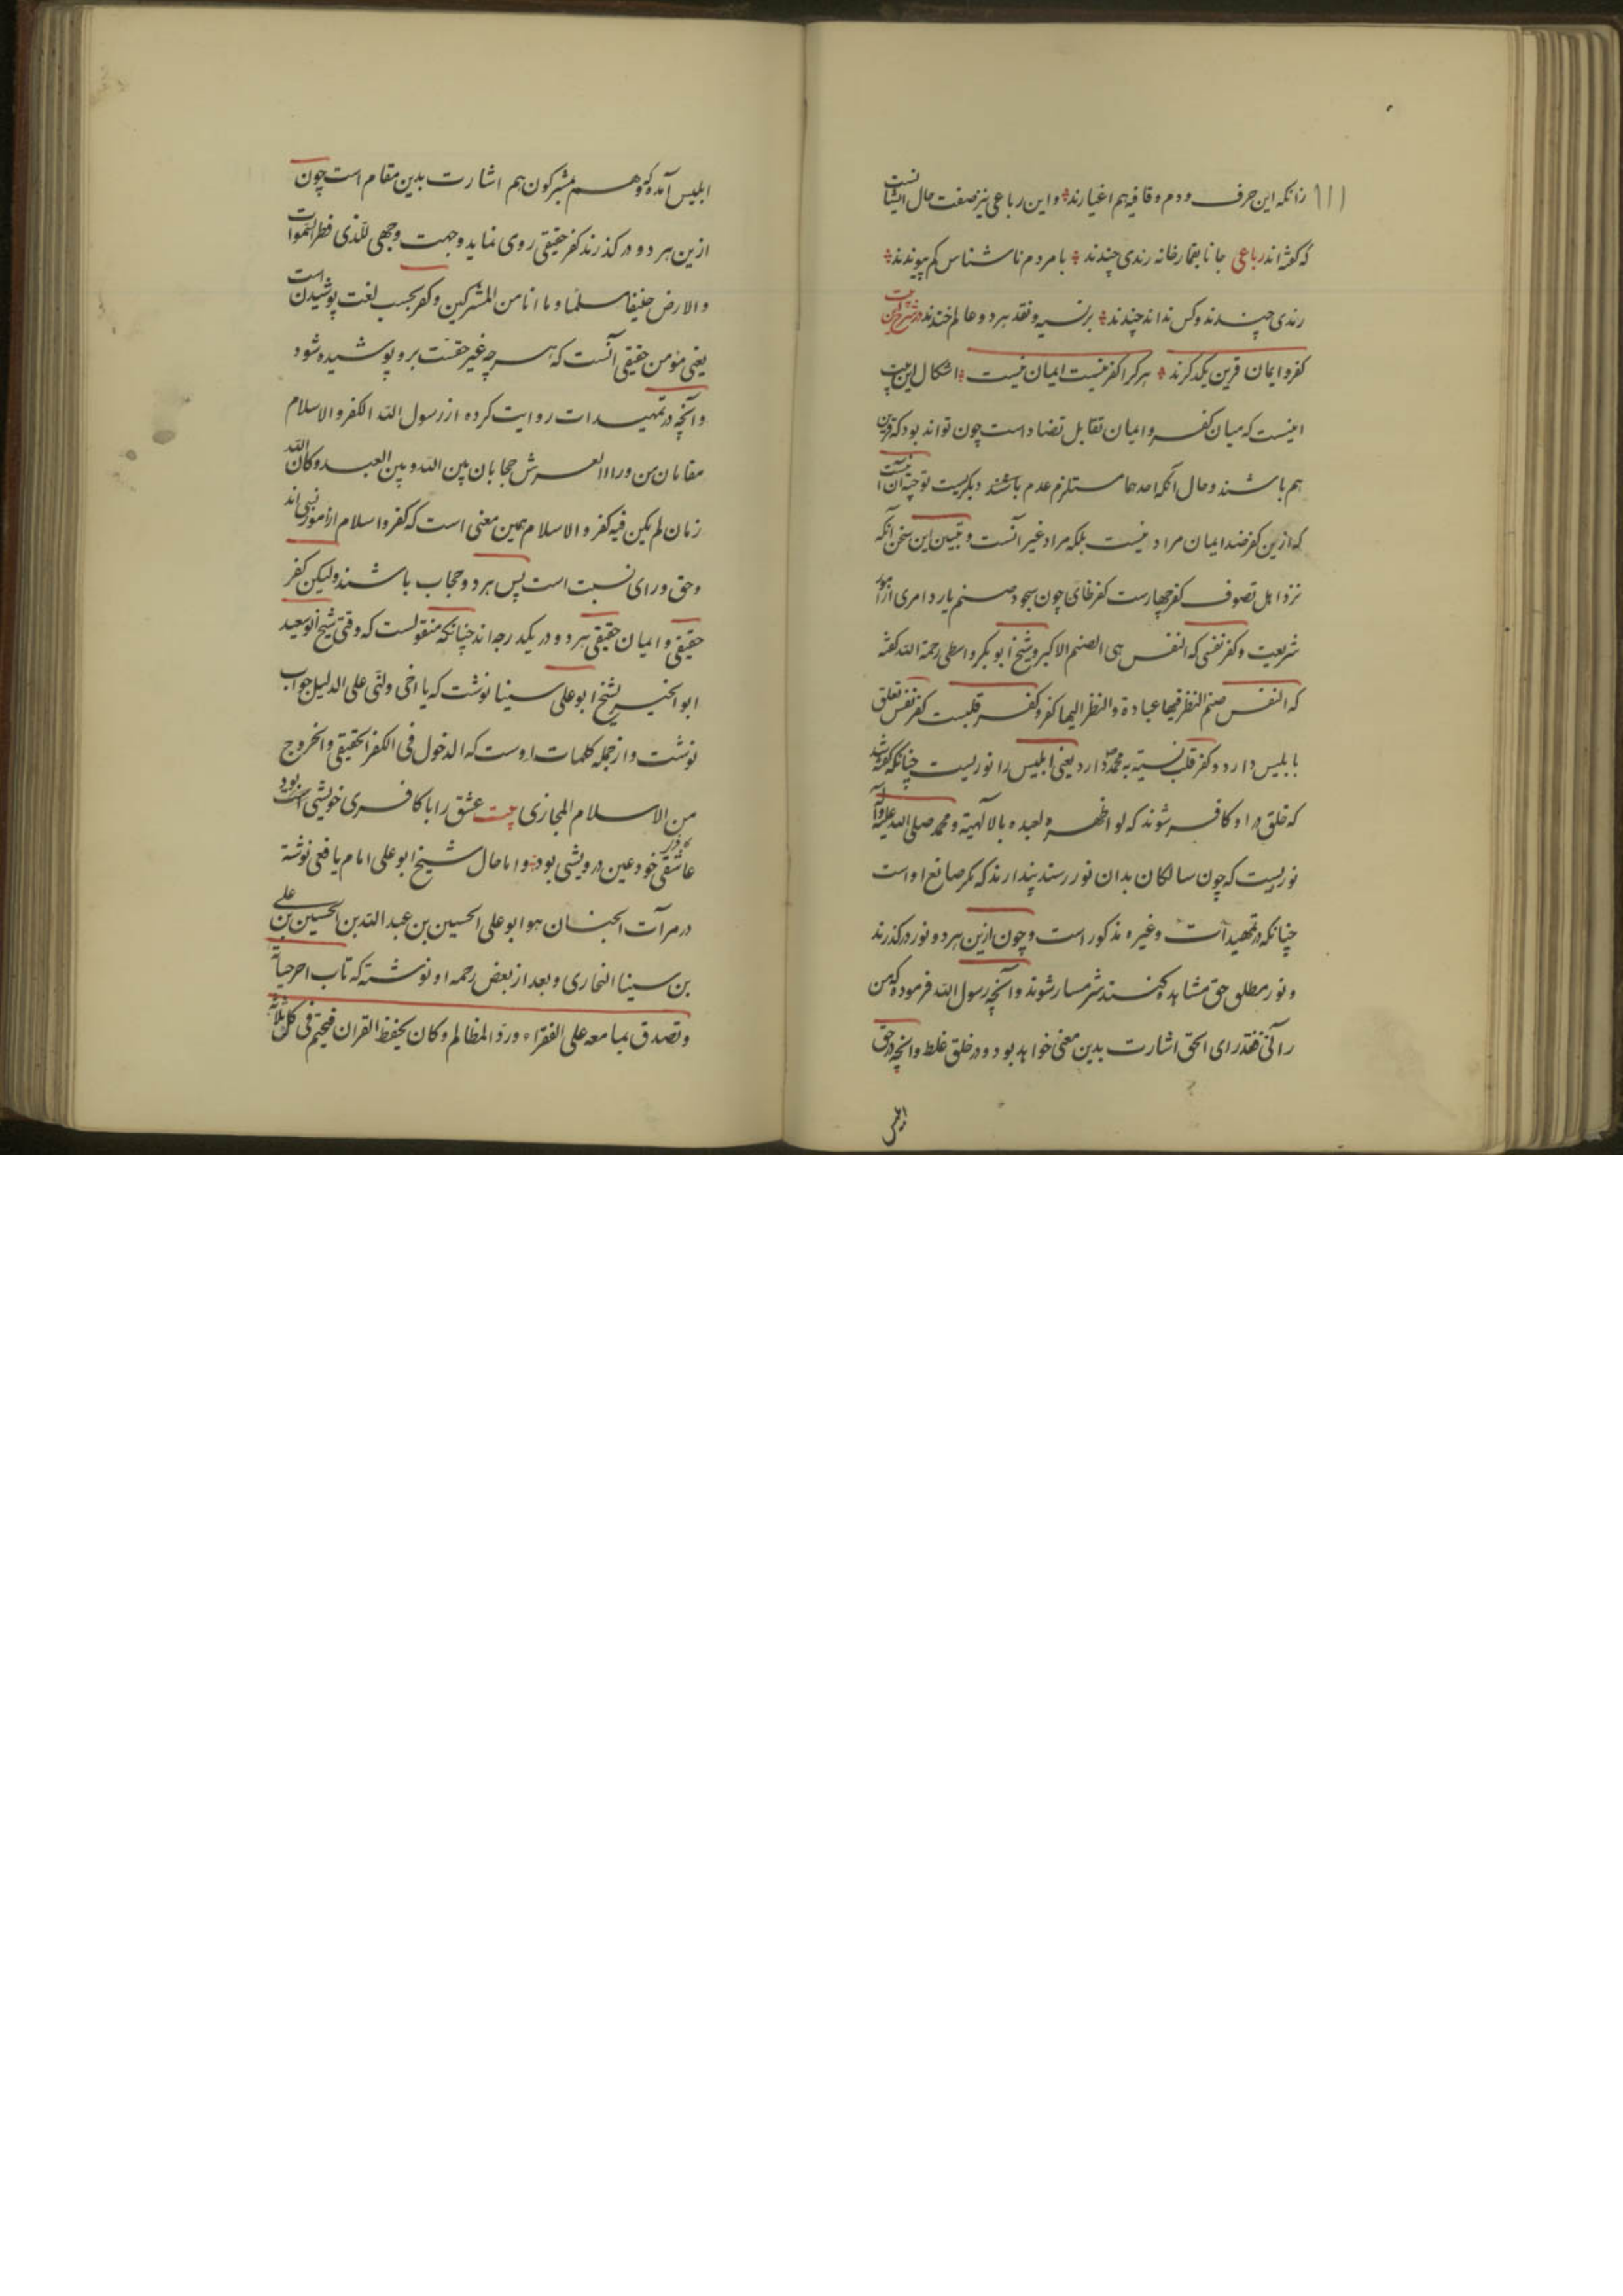 ۱۱۱ زانکه این حرف و دم و قافیه هم اغیارند و این رباعی نیز صفت حال ایشانست
که گفته‌اند رباعی جانا بقمارخانه رندی چندند با مردم ناشناس کم پیوندند
رندی چندند و کس نداند چندند بر نسیه و نقد هر دو عالم خندند در شرح این بیت
کفر و ایمان قرین یکدگرند هر که را کفر نیست ایمان نیست اشکال این بیت
اینست که میان کفر و ایمان تقابل تضاد است چون تواند بود که قرین
هم باشند و حال آنکه احدهما مستلزم عدم باشند دیگریست توجیه آن آنست
که ازین کفر ضد ایمان مراد نیست بلکه مراد غیر آنست و تبیین این سخن آنکه
نزد اهل تصوف کفر چهارست کفر ظاهری چون سجود صنم یا رد امری از امور
شریعت و کفر نفسی که النفس هی الصنم الاکبر و شیخ ابوبکر واسطی رحمة الله گفته
که النفس صنم النظر فیها عبادة والنظر الیها کفر و کفر قلبست کفر نفس تعلق
بابلیس دارد و کفر قلب نسبت به محمد دارد یعنی ابلیس را نوریست چنانکه گفته شد
که خلق در او کافر شوند که لو اظهره لعبده بالالهیة و محمد صلی الله علیه وآله
نوریست که چون سالکان بدان نور رسند پندارند که مگر صانع او است
چنانکه در تمهیدات و غیره مذکور است و چون ازین هر دو نور درگذرند
و نور مطلق حق مشاهده کنند شرمسار شوند و آنچه رسول الله فرموده که من
رآنی فقد رای الحق اشارت بدین معنی خواهد بود و در خلق غلط و آنچه در حق
ابلیس
ابلیس آمده که وهم مشرکون هم اشارت بدین مقام است چون
ازین هر دو درگذرند کفر حقیقی روی نماید وجهت وجهی للذی فطر السموات
والارض حنیفا مسلما و ما انا من المشرکین و کفر بحسب لغت پوشیدن است
یعنی مؤمن حقیقی آنست که هر چه غیر حقست برو پوشیده شود
و آنچه در تمهیدات روایت کرده از رسول الله الکفر والاسلام
مقامان من وراء العرش حجابان بین الله و بین العبد و کان الله
زمان لم یکن فیه کفر والاسلام همین معنی است که کفر و اسلام از امور نسبی‌اند
و حق ورای نسبت است پس هر دو حجاب باشند ولیکن کفر
حقیقی و ایمان حقیقی هر دو در یکدرجه‌اند چنانکه منقولست که وقتی شیخ ابو سعید
ابو الخیر بشیخ ابو علی سینا نوشت که یا اخی دلنی علی الدلیل جواب
نوشت و از جمله کلمات اوست که الدخول فی الکفر الحقیقی والخروج
من الاسلام المجازی بیت عشق را با کافری خویشی بود
عاشقی خود عین درویشی بود و اما حال شیخ ابو علی امام یافعی نوشته
در مرآت الجنان هو ابو علی الحسین بن عبد الله بن الحسین بن علی
بن سینا البخاری و بعد از بعض رحمه او نوشته که تاب اخر حیاته
و تصدق بما معه علی الفقراء ورد المظالم و کان یحفظ القران فیختم فی کل ثلاثة